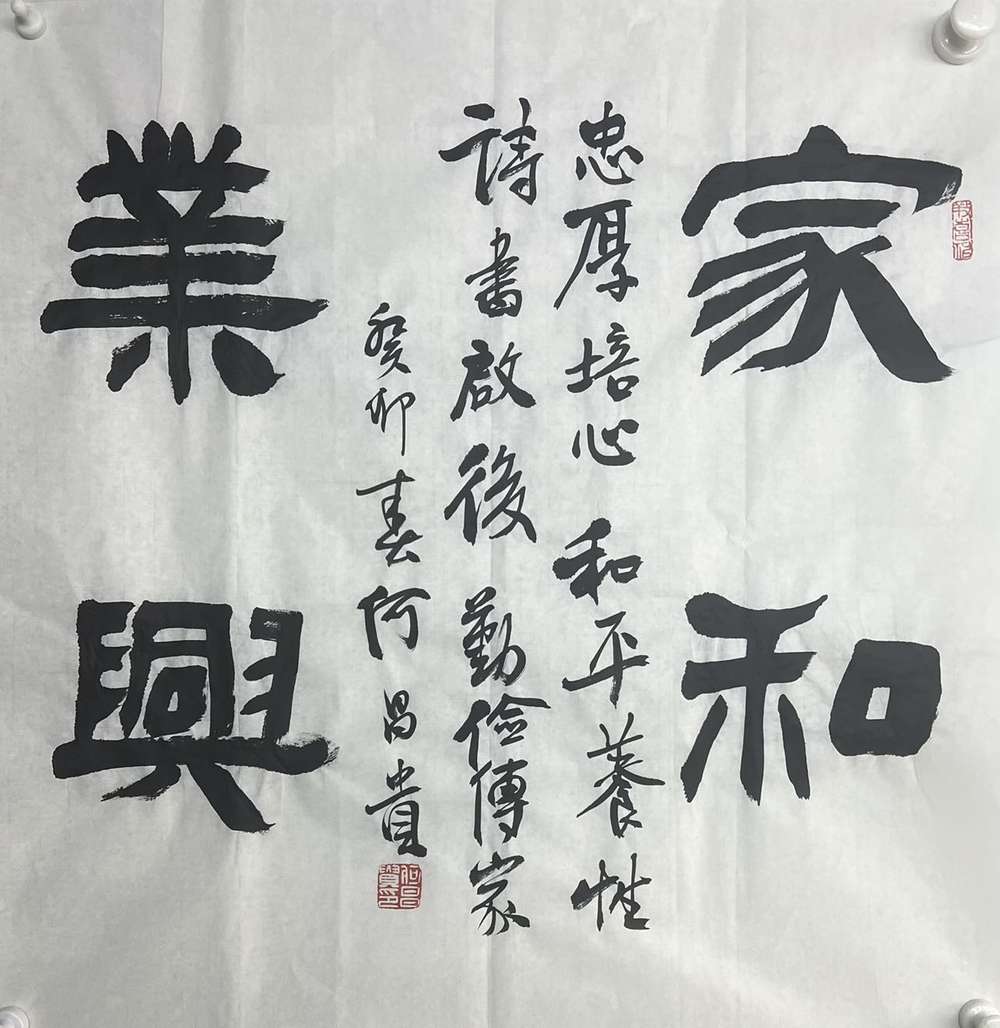 家和
忠厚培心和平養性
詩書啟後勤儉傳家
癸卯春何昌貴
業興